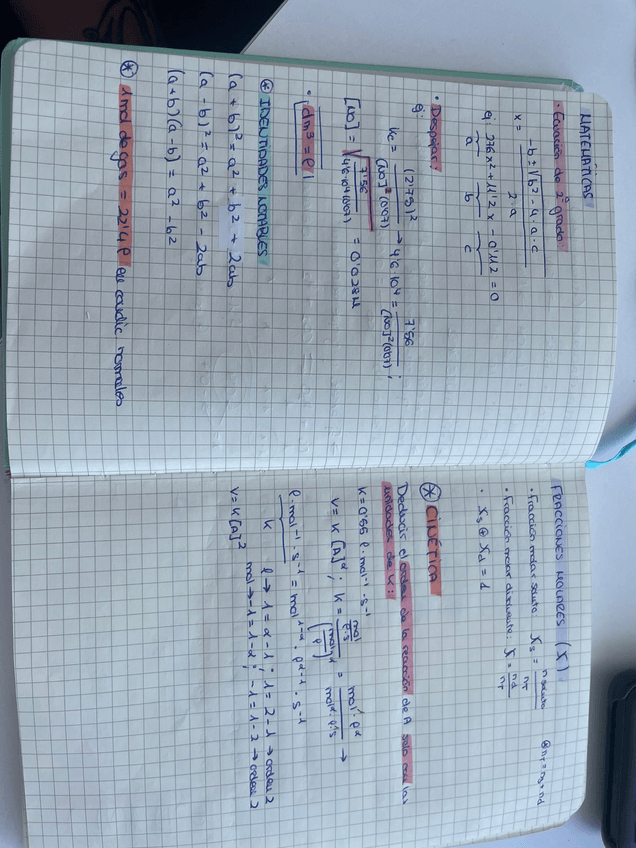 MATEMÁTICAS
· Ecuación de 2º grado:
x = -b ± √b² - 4·a·c / 2·a
ej 376x² + 11'2x - 0'112 = 0
a b c
· Despejar:
ej
Kc = (2'75)² / [NO]²(0'07) → 4'6·10⁴ = 7'56 / [NO]²(0'07) ;
[NO] = √7'56 / 4'6·10⁴(0'07) = 0'028M
· 1dm³ = 1ℓ
⊛ IDENTIDADES NOTABLES
(a + b)² = a² + b² + 2ab
(a - b)² = a² + b² - 2ab
(a+b)(a-b) = a² - b²
⊛ 1 mol de gas = 22'4 ℓ en condic normales
FRACCIONES MOLARES (X)
· Fracción molar soluto: Xs = n soluto / nT
⊛ nT = ns + nd
· Fracción molar disolvente: X = nd / nT
· Xs ⊕ Xd = 1
⊛ CINÉTICA
Deducir el orden de la reacción de A solo con las
unidades de K:
K = 0'55 ℓ·mol⁻¹·s⁻¹
v = K [A]^α ; K = (mol / ℓ·s) / (mol / ℓ)^α = mol¹·ℓ^α / mol^α·ℓ·s →
ℓ·mol⁻¹·s⁻¹ = mol^1-α · ℓ^α-1 · s⁻¹
K ℓ → 1 = α - 1 ; 1 = 2 - 1 → orden 2
mol → -1 = 1 - α ; -1 = 1 - 2 → orden 2
v = K [A]²